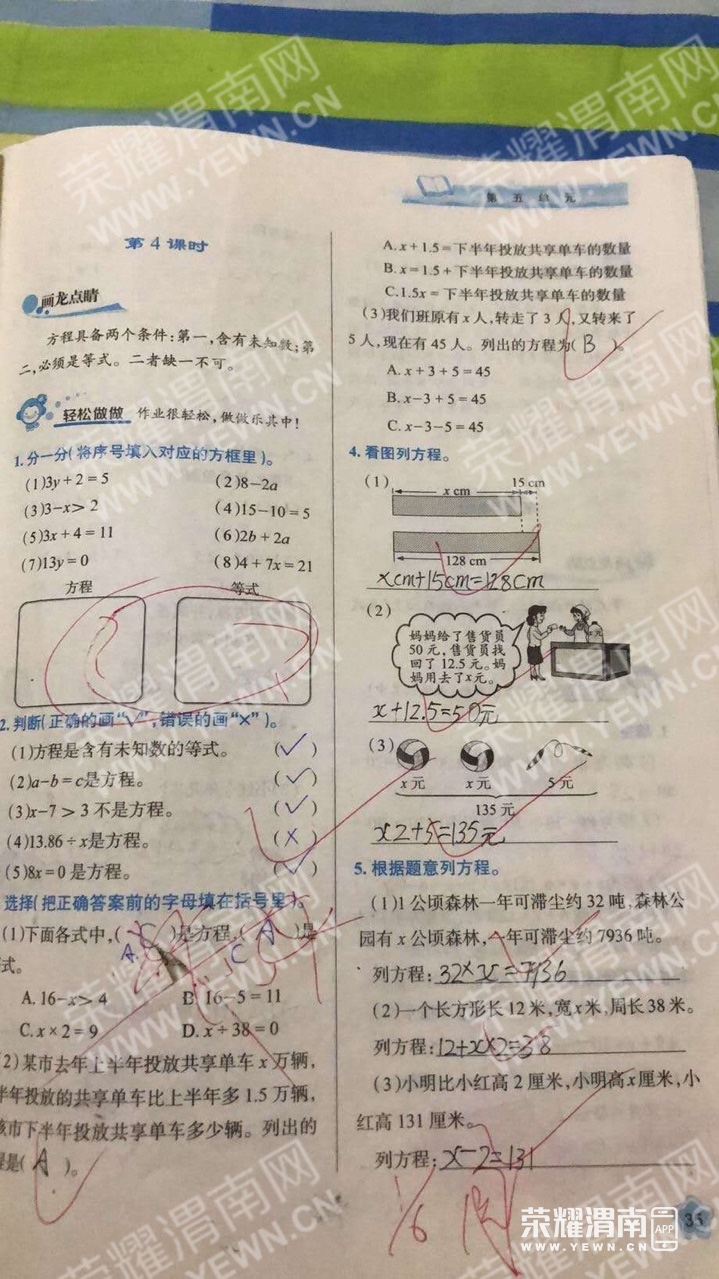 第五单元
第4课时
画龙点睛
方程具备两个条件:第一,含有未知数;第
二,必须是等式。二者缺一不可。
轻松做做 作业很轻松,做做乐其中!
1.分一分(将序号填入对应的方框里)。
(1)3y+2=5 (2)8-2a
(3)3-x>2 (4)15-10=5
(5)3x+4=11 (6)2b+2a
(7)13y=0 (8)4+7x=21
方程 等式
2.判断(正确的画“√”,错误的画“×”)。
(1)方程是含有未知数的等式。 (√)
(2)a-b=c是方程。 (√)
(3)x-7>3不是方程。 (√)
(4)13.86÷x是方程。 (×)
(5)8x=0是方程。 (√)
选择(把正确答案前的字母填在括号里)。
(1)下面各式中,( C )是方程,( A )是
A. C
式。
A.16-x>4 B.16-5=11
C.x×2=9 D.x÷38=0
2)某市去年上半年投放共享单车x万辆,
半年投放的共享单车比上半年多1.5万辆,
该市下半年投放共享单车多少辆。列出的
程是( A )。
A.x+1.5=下半年投放共享单车的数量
B.x=1.5+下半年投放共享单车的数量
C.1.5x=下半年投放共享单车的数量
(3)我们班原有x人,转走了3人,又转来了
5人,现在有45人。列出的方程为( B )。
A.x+3+5=45
B.x-3+5=45
C.x-3-5=45
4.看图列方程。
(1)
x cm 15 cm
128 cm
xcm+15cm=128cm
(2)
妈妈给了售货员
50元,售货员找
回了12.5元。妈
妈用去了x元。
x+12.5=50元
(3)
x元 x元 5元
135元
x2+5=135元
5.根据题意列方程。
(1)1公顷森林一年可滞尘约32吨,森林公
园有x公顷森林,一年可滞尘约7936吨。
列方程:32×x=7936
(2)一个长方形长12米,宽x米,周长38米。
列方程:12+x×2=38
(3)小明比小红高2厘米,小明高x厘米,小
红高131厘米。
列方程:x-2=131
35
荣耀渭南网
WWW.YEWN.CN
荣耀渭南网 APP
WWW.YEWN.CN